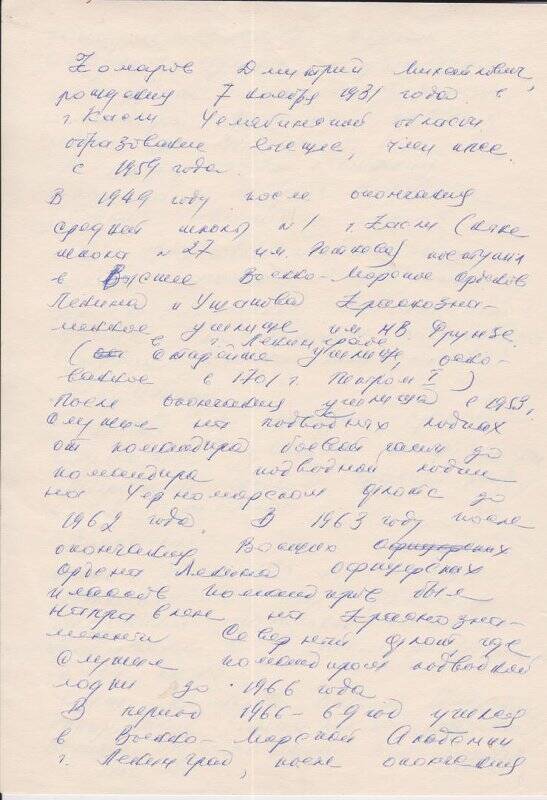 Комаров Дмитрий Михайлович,
рождения 7 ноября 1931 года в
г. Касли Челябинской области
образование высшее, член кпсс
с 1959 года.
В 1949 году после окончания
средней школы №1 г. Касли (ныне
школа №27 им. ) поступил
в Высшее Военно-Морское орденов
Ленина и Ушакова Краснозна-
менное училище им. М.В. Фрунзе,
в г. Ленинграде
( Старейшее училище, осно-
ванное в 1701 г. Петром I)
После окончания училища с 1953,
служил на подводных лодках
от командира боевой части до
командира подводной лодки
на Черноморском флоте до
1962 года. В 1963 году после
окончания Высших офицерских
ордена Ленина офицерских
классов командиров был
направлен на Краснозна-
менный Северный флот, где
служил командиром подводной
лодки до 1966 года
В период 1966-69 год учился
в Военно-Морской Академии
г. Ленинград, после окончания